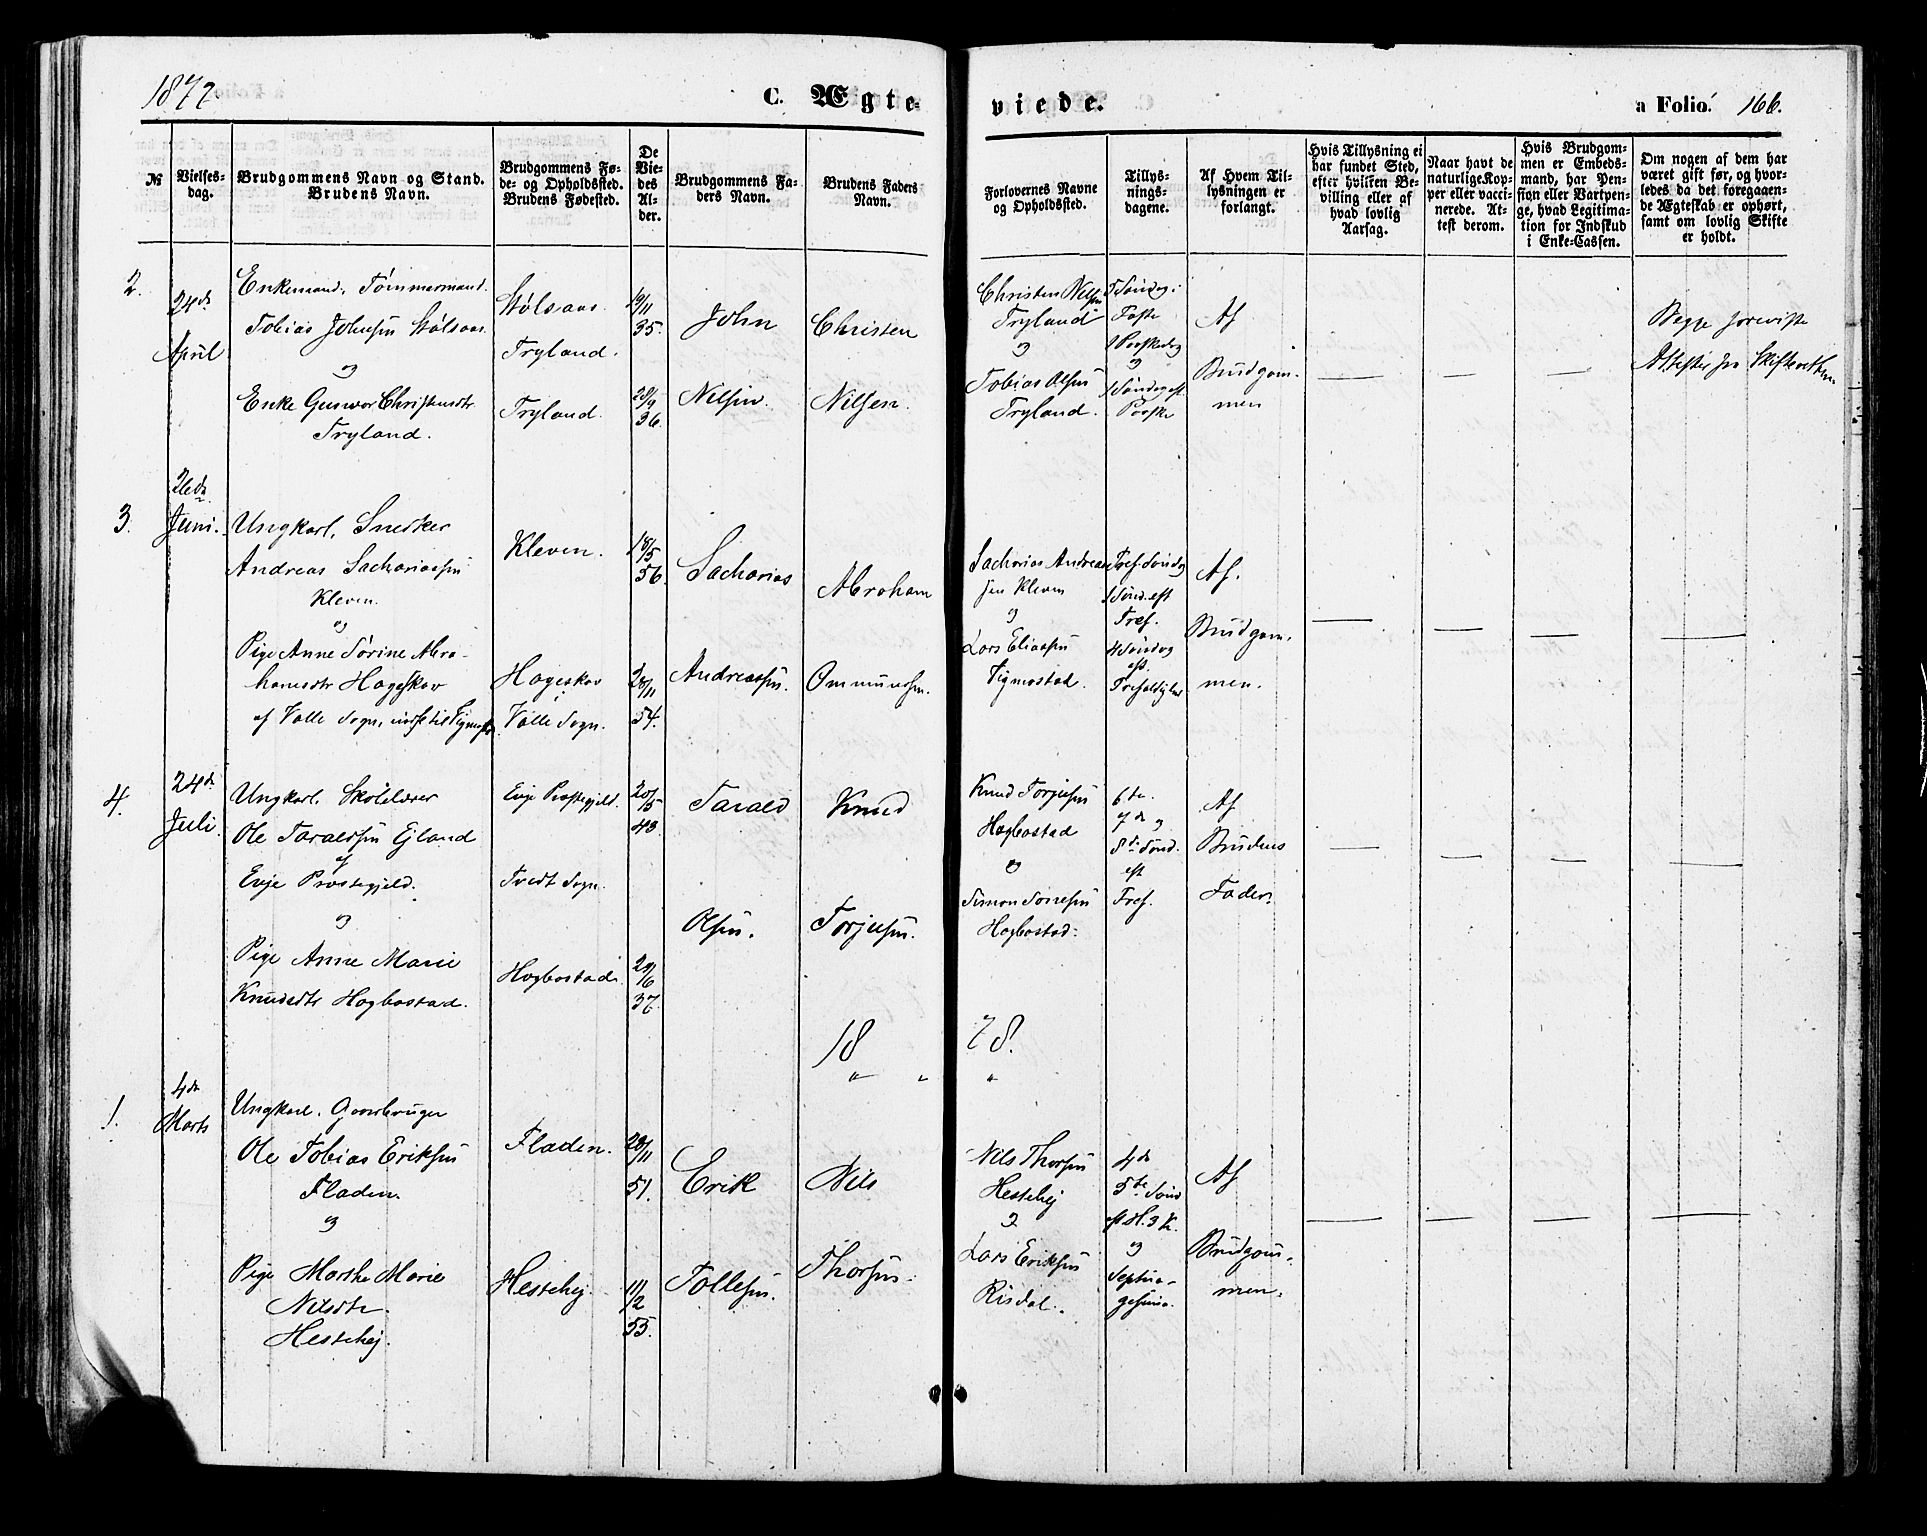 1877
C. Ægte
viede.
a Folio. 166.
№
Vielses-
dag.
Brudgommens Navn og Stand.
Brudens Navn.
Brudgommens Fø-
de- og Opholdssted.
Brudens Fødested.
De
Vie-
des
Al-
der.
Brudgommens Fa-
ders Navn.
Brudens Faders
Navn.
Forlovernes Navne
og Opholdssted.
Tillys-
nings-
dagene.
Af Hvem Til-
lysningen er
forlangt.
Hvis Tillysning ei
har fundet Sted,
efter hvilken Be-
villing eller af
hvad lovlig
Aarsag.
Naar havt de
naturlige Kop-
per eller vacci-
nerede. At-
test derom.
Hvis Brudgom-
men er Embeds-
mand, har Pen-
sion eller Vartpen-
ge, hvad Legitima-
tion for Indskud
i Enke-Cassen.
Om nogen af dem har
været gift før, og hvor-
ledes da det foregaaen-
de Ægteskab er ophørt,
samt om lovlig Skifte
er holdt.
2.
24de
April
Enkemand, Tømmermand
Tobias Johnsen Stølsaas
og
Enke Gunvor Christensdtr
Tryland.
Stølsaas.
Tryland.
Tryland.
19/11
35.
28/9
36.
John
Nilsen.
Christen
Nilsen.
Christen Nilsen
Tryland
og
Tobias Olsen
Tryland.
1 Søndag i
Faste
1 Paaskedag
og
1 Søndag eft
Paaske
Af
Brudgom-
men
Begge foreviste
Attester fra Skifteretten
3.
26de
Juni.
Ungkarl, Snedker
Andreas Sachariassen
Kleven.
og
Pige Anne Sørine Abra-
hamsdtr Hageskov
af Valle Sogn,
Kleven.
Hageskov
Valle Sogn.
18/5
56.
28/11
54.
Sacharias
Andreassen.
Abraham
Ommundsen.
Sacharias Andreas
sen Kleven
og
Lars Eliassen
Vigmostad.
Tref. Søndag
1 Sønd. eft
Tref.
4 Søndag
eft.
Trefoldighed
Af.
Brudgom-
men.
4.
24de
Juli.
Ungkarl, Skolelærer
Ole Taraldsen Ejland
af
Evje Præstegjeld.
og
Pige Anne Marie
Knudsdtr Hogbostad.
Evje Præstegjeld.
Tvedt Sogn.
Hogbostad.
20/5
43
29/6
37.
Tarald
Olsen.
Knud
Torjusen.
Knud Torjusen
Hogbostad
og
Simon Tønnesen
Hogbostad.
6te.
7de og
8de Sønd.
eft
Tref.
Af
Brudens
Fader.
18 78.
1.
4de
Marts
Ungkarl, Gaardbruger
Ole Tobias Eriksen
Fladen.
og
Pige Marthe Marie
Nilsdtr.
Hestehej.
Fladen.
Hestehej.
28/11
51.
11/2
55.
Erik
Tollefsen.
Nils
Thorsen.
Nils Thorsen
Hestehej
og
Lars Eriksen
Risdal.
4de
5te Sønd
eft H. 3 K.
og
Septua-
gesima.
Af
Brudgom-
men.